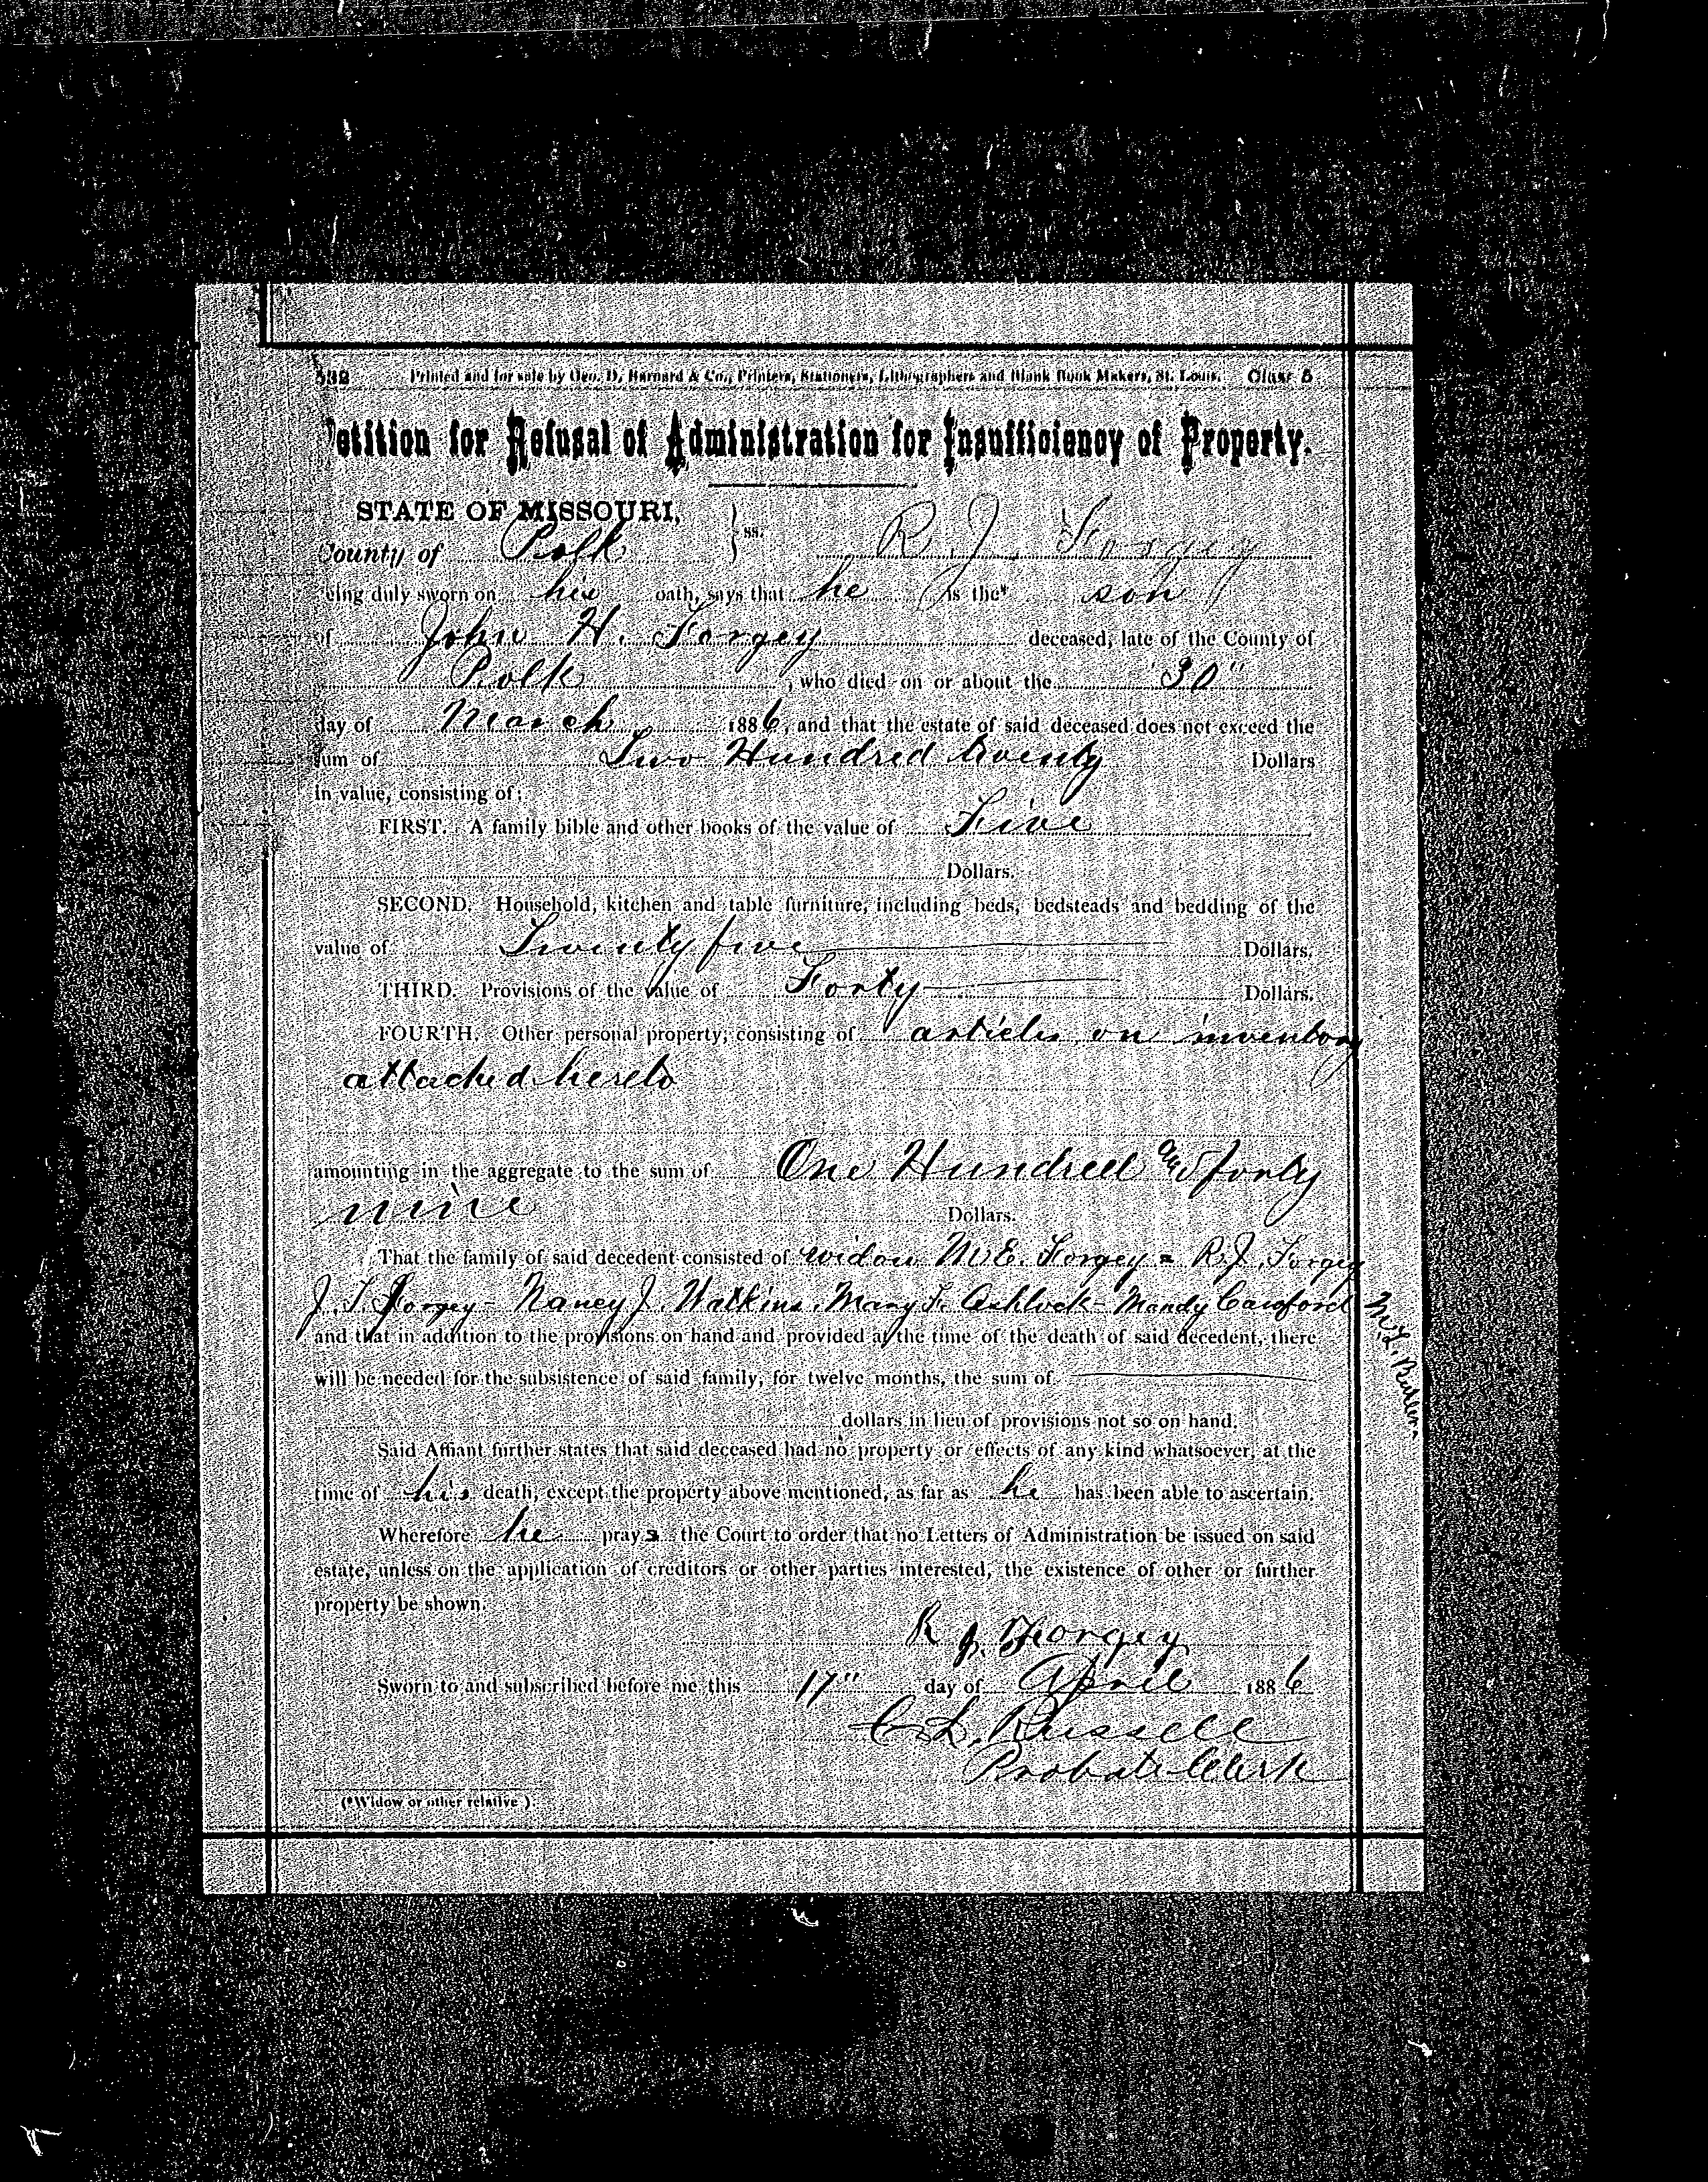 532 Printed and for sale by Geo. D. Barnard & Co., Printers, Stationers, Lithographers and Blank Book Makers, St. Louis. Class 5
etition for Refusal of Administration for Insufficiency of Property.
STATE OF MISSOURI, } ss. R. J. Forgey
County of Polk
eing duly sworn on his oath, says that he is the* son
of John H. Forgey deceased, late of the County of
Polk, who died on or about the 30"
day of March 1886, and that the estate of said deceased does not exceed the
sum of Two Hundred twenty Dollars
in value, consisting of:
FIRST. A family bible and other books of the value of Five
Dollars.
SECOND. Household, kitchen and table furniture, including beds, bedsteads and bedding of the
value of Twenty five Dollars.
THIRD. Provisions of the value of Forty Dollars.
FOURTH. Other personal property, consisting of articles on inventory
attached hereto
amounting in the aggregate to the sum of One Hundred and forty
nine Dollars.
That the family of said decedent consisted of widow M E. Forgey = R. J. Forgey
J. T. Forgey - Nancy J. Watkins, Mary F. Ashlock - Mandy Cawford
M. L.
and that in addition to the provisions on hand and provided at the time of the death of said decedent, there
will be needed for the subsistence of said family, for twelve months, the sum of
dollars in lieu of provisions not so on hand.
Said Affiant further states that said deceased had no property or effects of any kind whatsoever, at the
time of his death, except the property above mentioned, as far as he has been able to ascertain.
Wherefore he prays the Court to order that no Letters of Administration be issued on said
estate, unless on the application of creditors or other parties interested, the existence of other or further
property be shown.
R J. Forgey
Sworn to and subscribed before me this 17" day of April 1886
C. L. Russell
Probate Clerk
(*Widow or other relative)